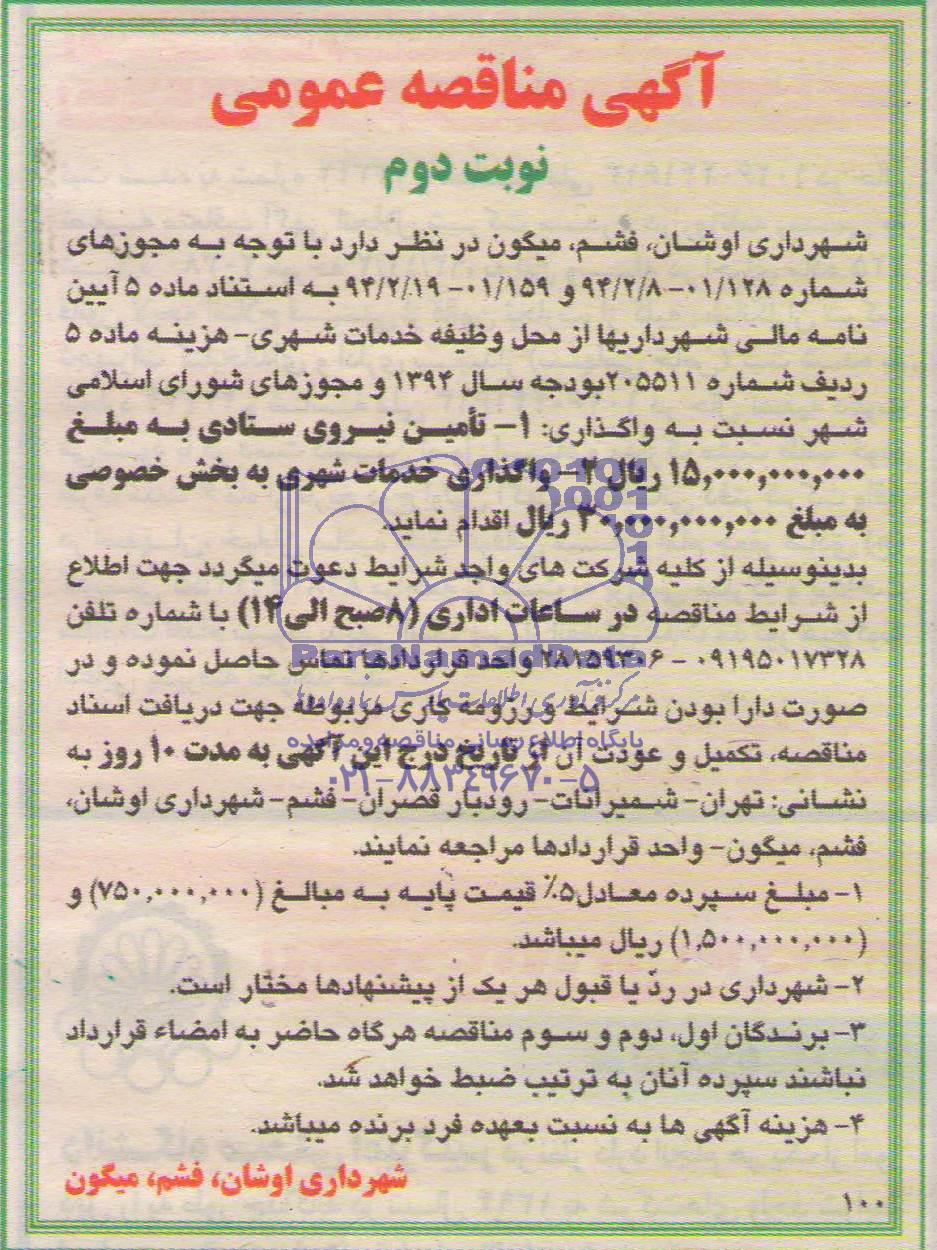 آگهی مناقصه عمومی
نوبت دوم
شهرداری اوشان، فشم، میگون در نظر دارد با توجه به مجوزهای
شماره ۰۱/۱۲۸-۹۴/۲/۸ و ۰۱/۱۵۹-۹۴/۲/۱۹ به استناد ماده ۵ آیین
نامه مالی شهرداریها از محل وظیفه خدمات شهری- هزینه ماده ۵
ردیف شماره ۲۰۵۵۱۱بودجه سال ۱۳۹۴ و مجوزهای شورای اسلامی
شهر نسبت به واگذاری: ۱- تأمین نیروی ستادی به مبلغ
۱۵,۰۰۰,۰۰۰,۰۰۰ ریال ۲- واگذاری خدمات شهری به بخش خصوصی
به مبلغ ۳۰,۰۰۰,۰۰۰,۰۰۰ ریال اقدام نماید.
بدینوسیله از کلیه شرکت های واجد شرایط دعوت میگردد جهت اطلاع
از شرایط مناقصه در ساعات اداری (۸صبح الی ۱۴) با شماره تلفن
۰۹۱۹۵۰۱۷۳۲۸ - ۲۸۱۵۹۳۰۶ واحد قراردادها تماس حاصل نموده و در
صورت دارا بودن شرایط و رزومه کاری مربوطه جهت دریافت اسناد
مناقصه، تکمیل و عودت آن از تاریخ درج این آگهی به مدت ۱۰ روز به
نشانی: تهران- شمیرانات- رودبار قصران- فشم- شهرداری اوشان،
فشم، میگون- واحد قراردادها مراجعه نمایند.
۱- مبلغ سپرده معادل۵٪ قیمت پایه به مبالغ (۷۵۰,۰۰۰,۰۰۰) و
(۱,۵۰۰,۰۰۰,۰۰۰) ریال میباشد.
۲- شهرداری در ردّ یا قبول هر یک از پیشنهادها مختار است.
۳- برندگان اول، دوم و سوم مناقصه هرگاه حاضر به امضاء قرارداد
نباشند سپرده آنان به ترتیب ضبط خواهد شد.
۴- هزینه آگهی ها به نسبت بعهده فرد برنده میباشد.
شهرداری اوشان، فشم، میگون
۱۰۰
ParsNamadData
پایگاه اطلاع رسانی مناقصه و مزایده
۰۲۱-۸۸۳۴۹۶۷۰-۵